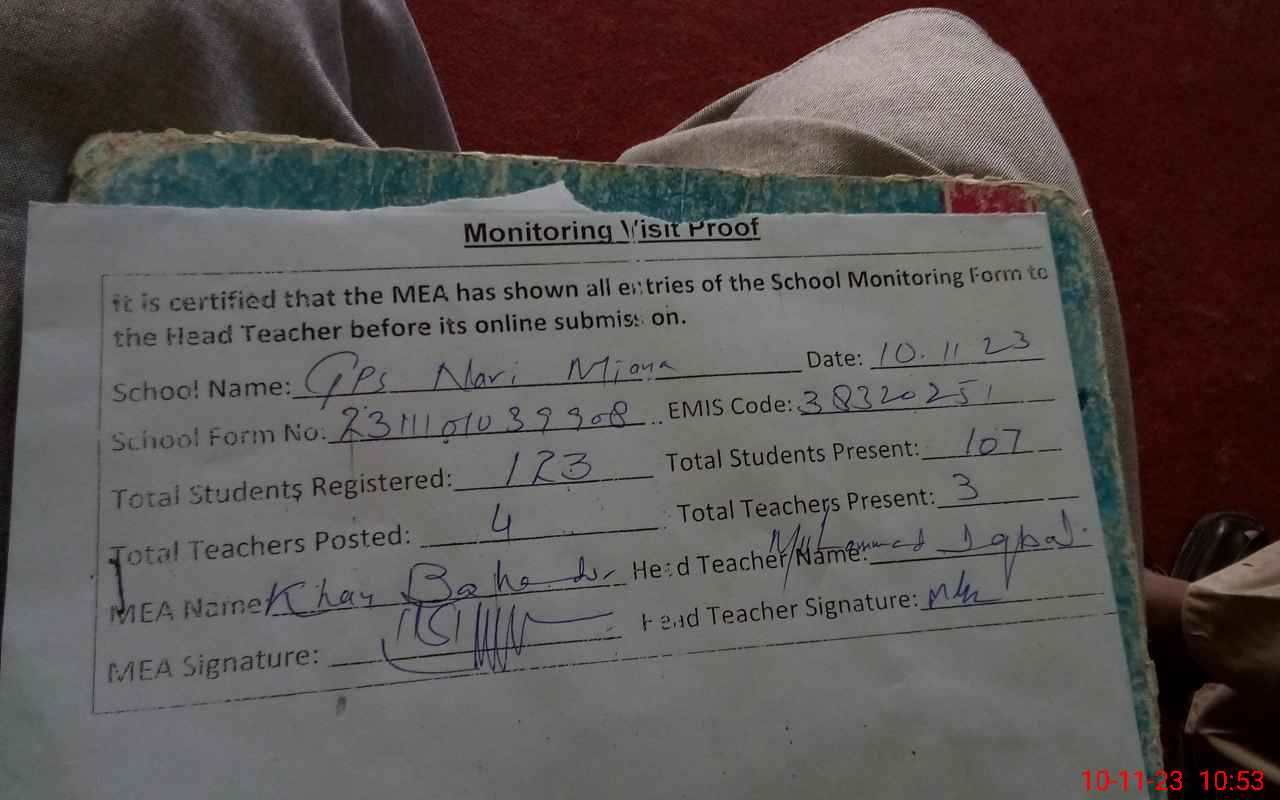 Monitoring Visit Proof
It is certified that the MEA has shown all entries of the School Monitoring Form to
the Head Teacher before its online submission.
School Name: GPS Nari Miana Date: 10.11 23
School Form No: 2311101039908 EMIS Code: 38320251
Total Students Registered: 123 Total Students Present: 107
Total Teachers Posted: 4 Total Teachers Present: 3
MEA Name: Khan Bahadur Head Teacher Name: Muhammad Iqbal
MEA Signature: Head Teacher Signature:
10-11-23 10:53